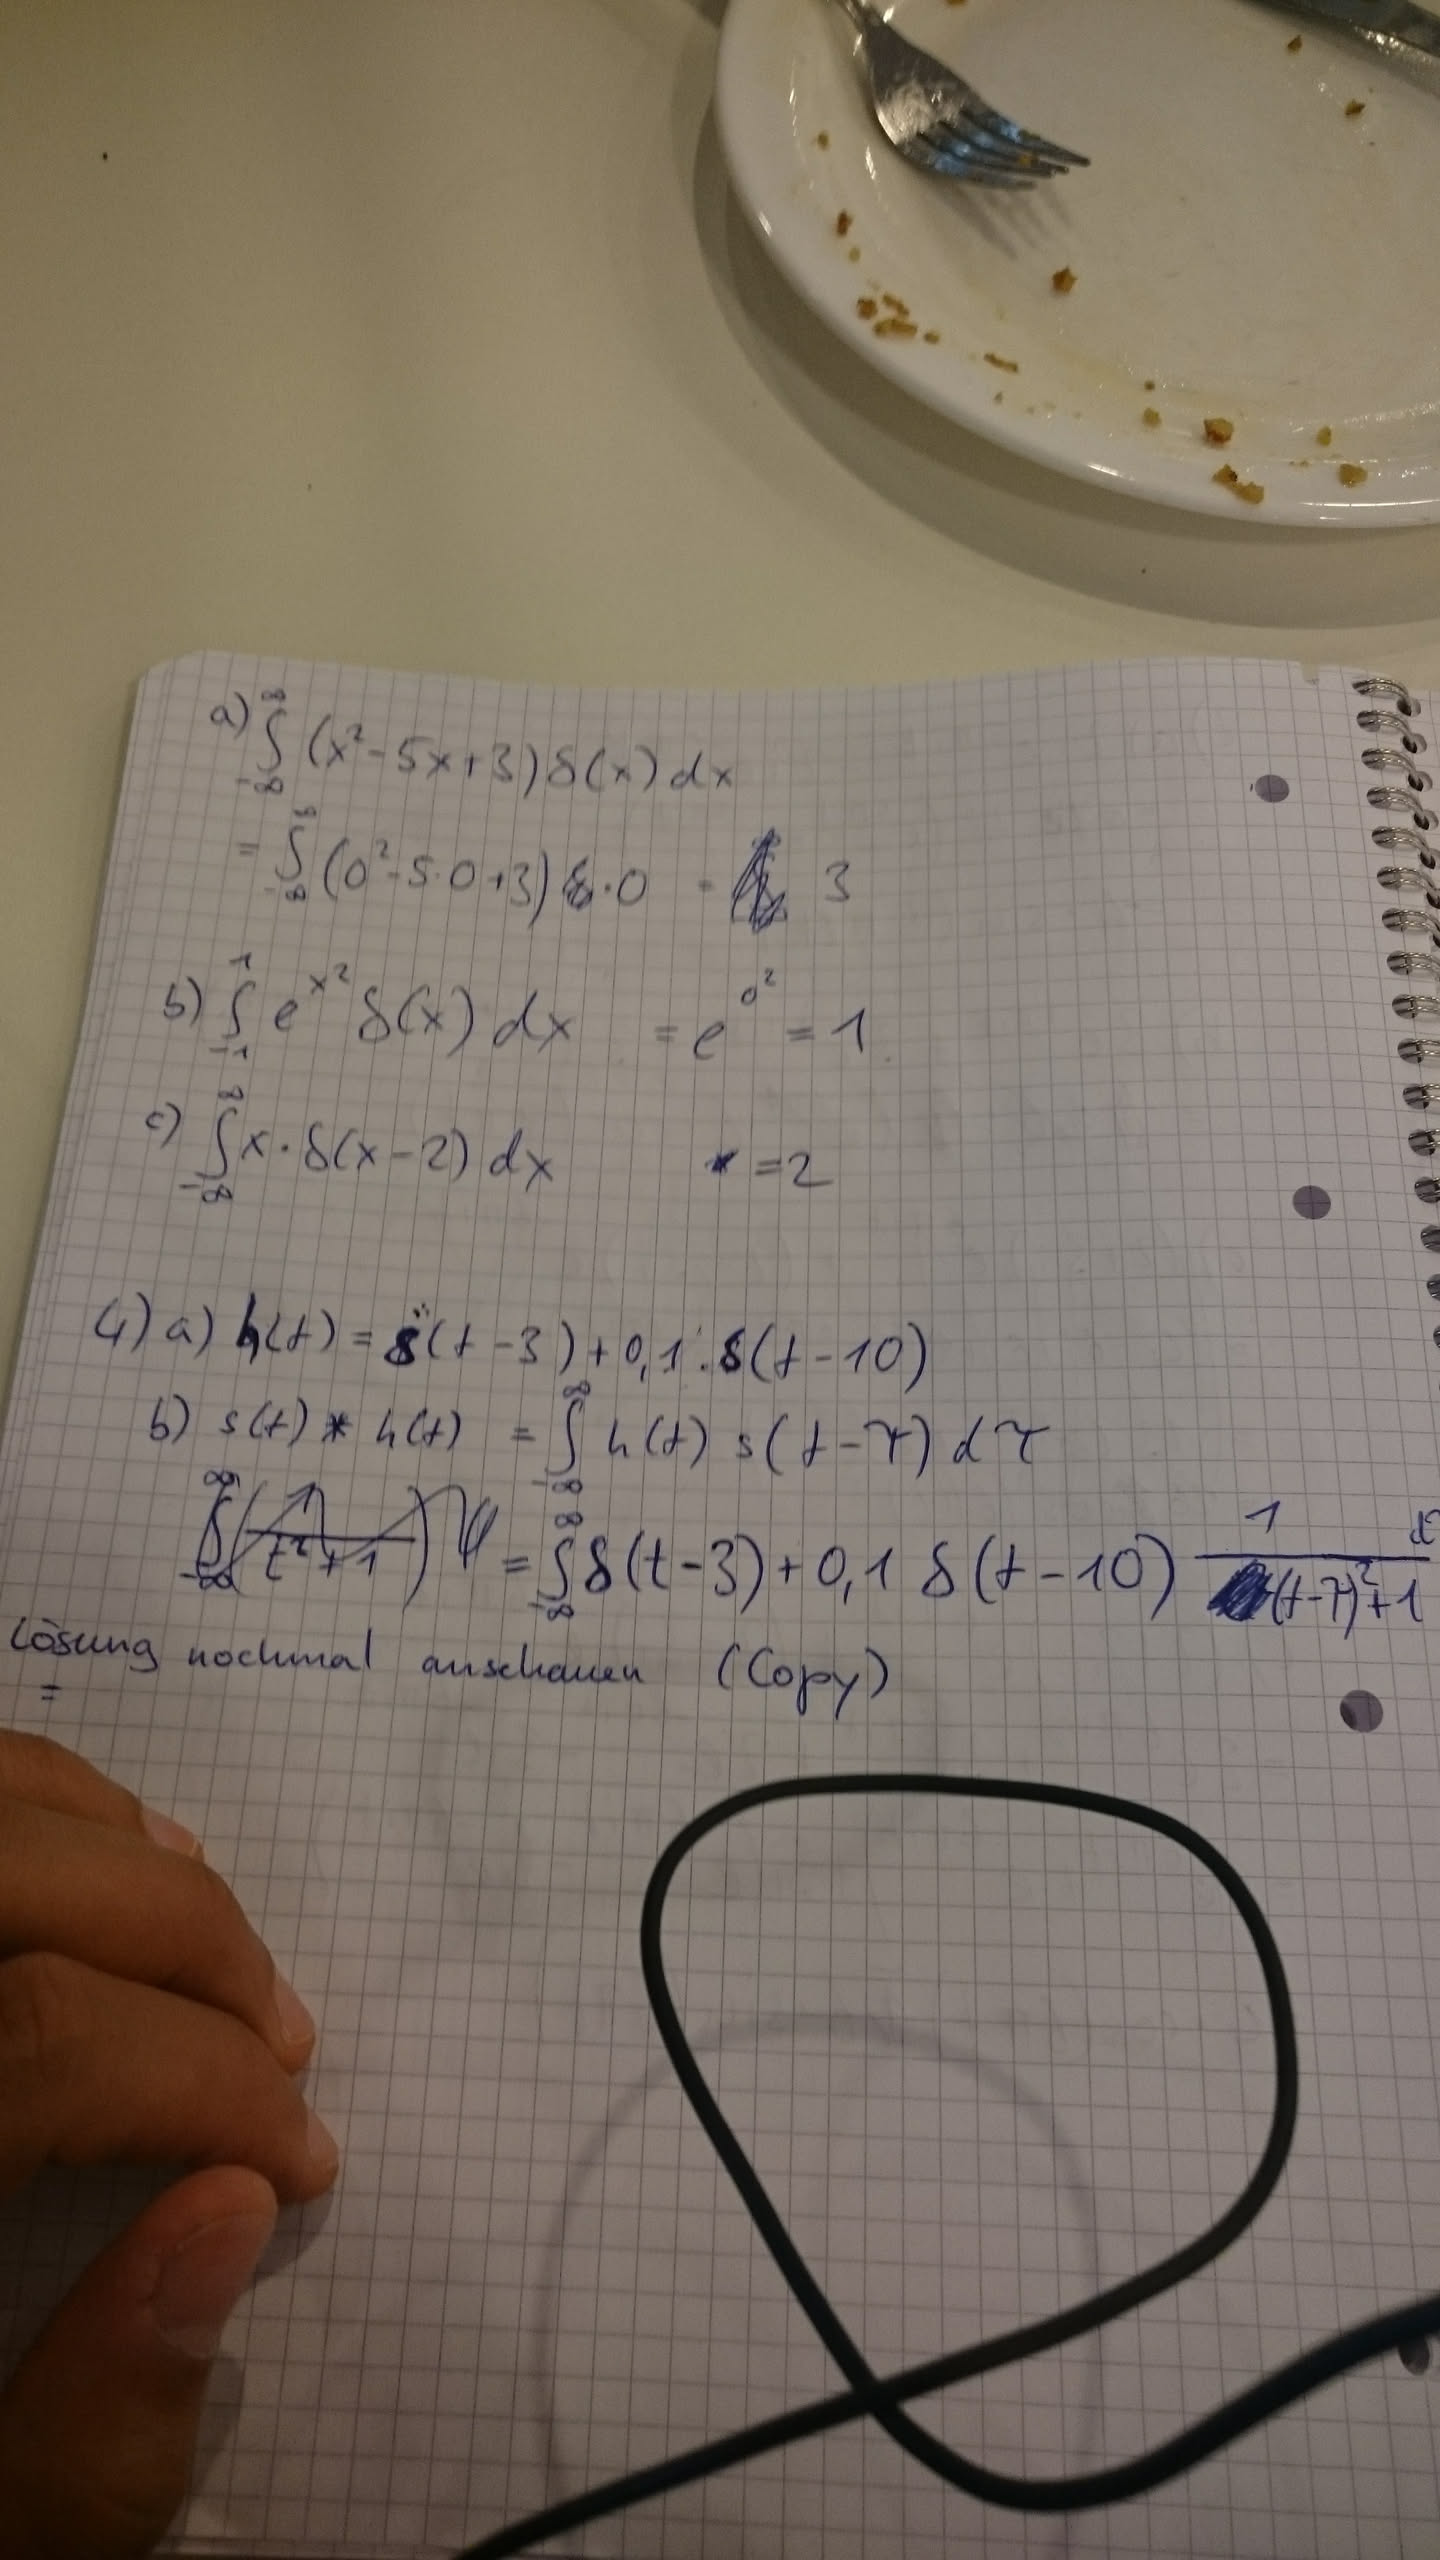 a) ∫_{-∞}^{∞} (x² - 5x + 3) δ(x) dx
= ∫_{-∞}^{∞} (0² - 5·0 + 3) δ·0 = 3
b) ∫_{-1}^{1} e^{x²} δ(x) dx = e^{0²} = 1
c) ∫_{-∞}^{∞} x · δ(x - 2) dx = 2
4) a) h(t) = δ(t - 3) + 0,1 · δ(t - 10)
b) s(t) * h(t) = ∫_{-∞}^{∞} h(t) s(t - τ) dτ
∫_{-∞}^{∞} (1/(t² + 1)) = ∫_{-∞}^{∞} δ(t - 3) + 0,1 δ(t - 10) 1/((t - τ)² + 1)
Lösung nochmal anschauen (Copy)
=